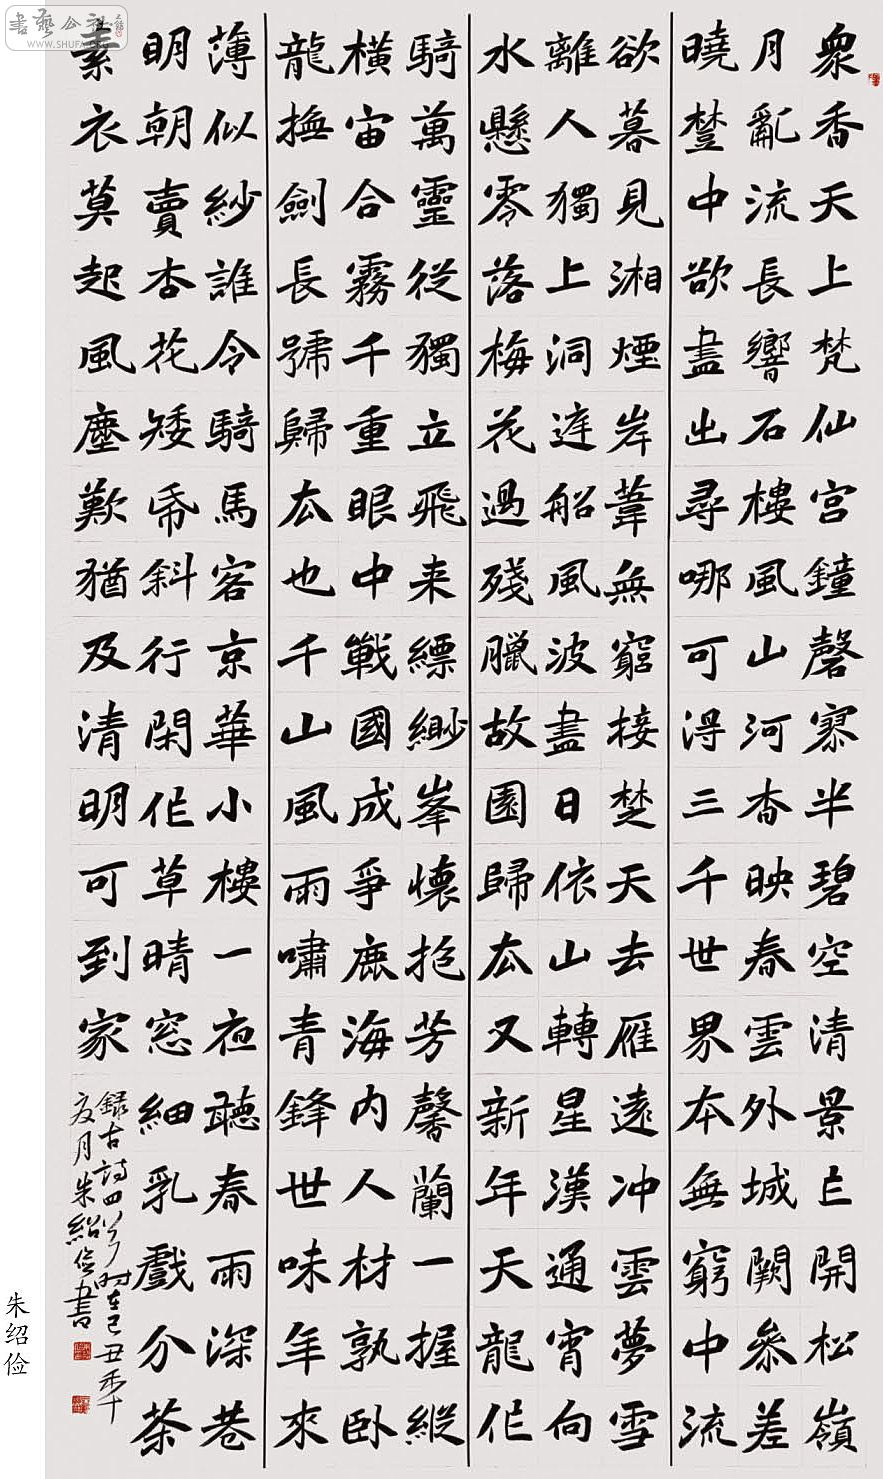 眾香天上梵仙宮鐘磬寥半碧空清景㠯開松嶺
月亂流長響石樓風山河杳映春雲外城闕參差
曉㙁中欲盡出尋哪可淂三千世界本無窮中流
欲暮見湘煙岸葦無窮接楚天去雁遠冲雲夢雪
離人獨上洞遅船風波盡日依山轉星漢通宵向
水懸零落梅花過殘臘故園歸厺又新年天龍作
騎萬靈從獨立飛来縹緲峯懷抱芳馨蘭一握縱
橫宙合霧千重眼中戰國成爭鹿海內人材孰卧
龍撫劍長號歸厺也千山風雨嘯青鋒世味年來
薄似紗誰令騎馬客京華小樓一夜聽春雨深巷
明朝賣杏花矮帋斜行閑作草晴窓細乳戲分茶
素衣莫起風塵歎猶及清明可到家
錄古詩四首時在己丑年
友月朱紹俭書
朱绍俭
書藝公社
WWW.SHUFA.ORG